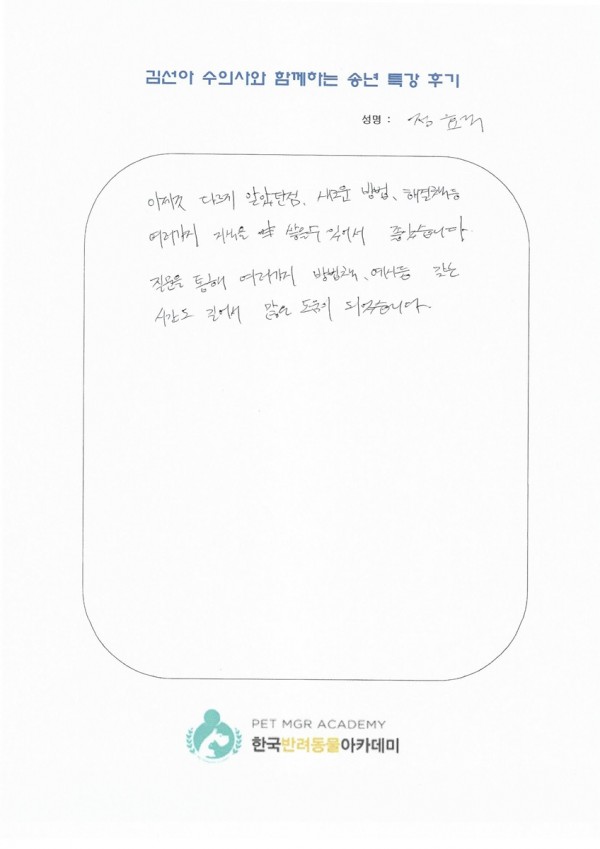 김선아 수의사와 함께하는 송년 특강 후기
성명 : 정
이제껏 다르게 알았단점, 새로운 방법, 해결책등
여러가지 지식을 쌓을수 있어서 좋았습니다.
질문을 통해 여러가지 방법책, 예시등 갖는
시간도 길어서 많은 도움이 되었습니다.
PET MGR ACADEMY
한국반려동물아카데미